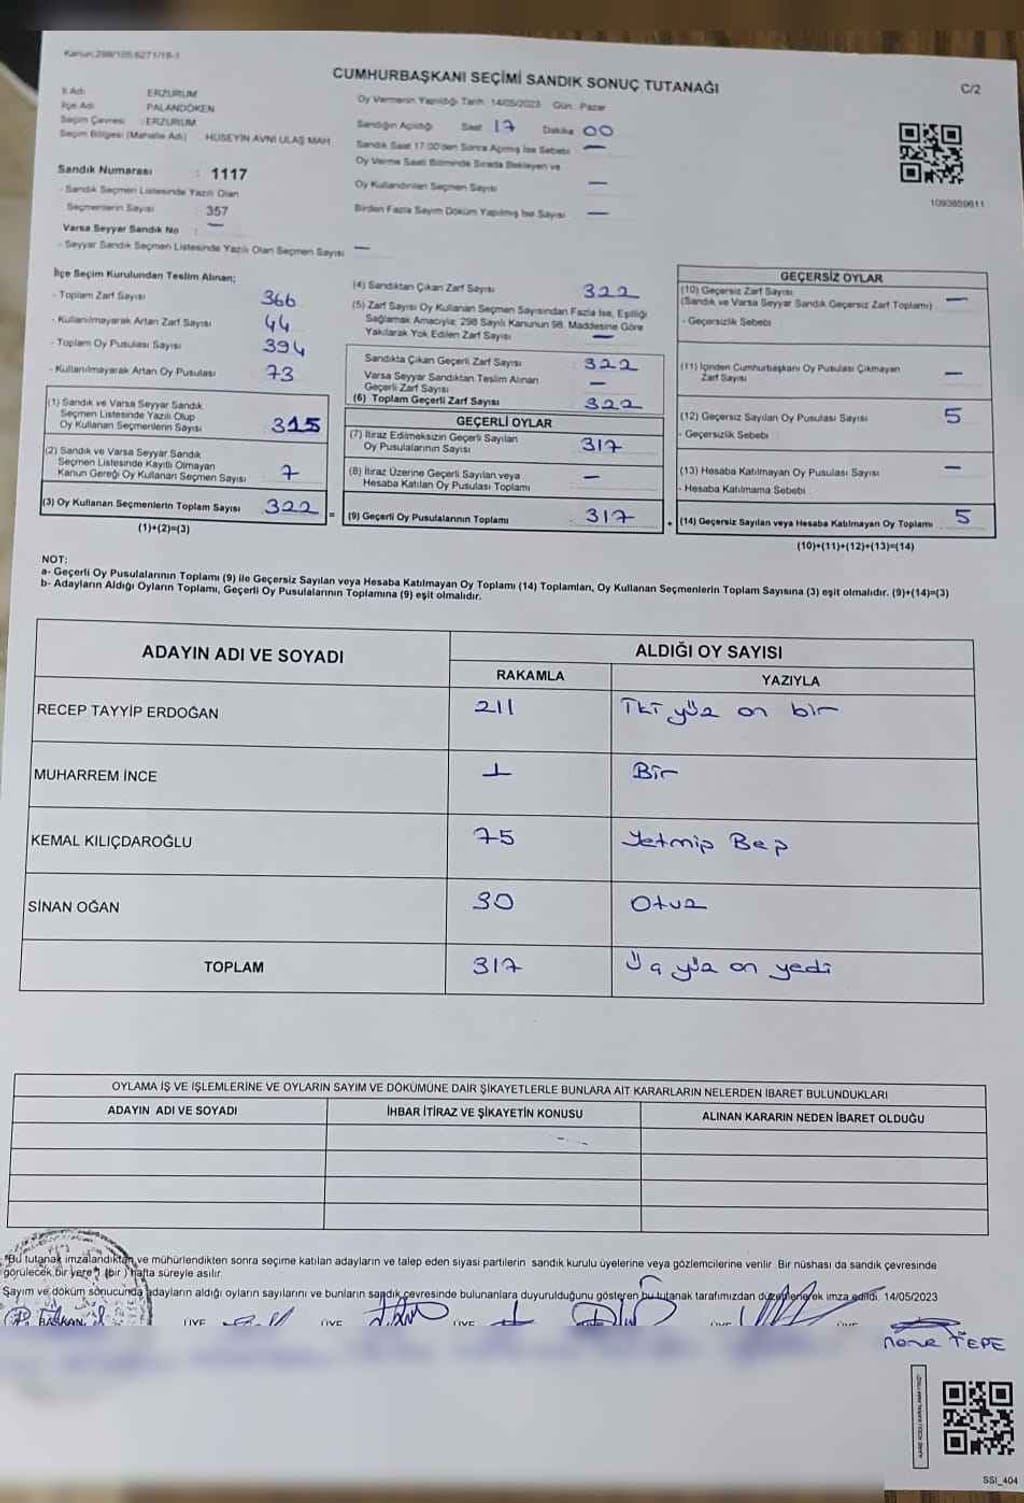 Kanun:298/105,6271/18-1
CUMHURBAŞKANI SEÇİMİ SANDIK SONUÇ TUTANAĞI
C/2
İl Adı : ERZURUM
İlçe Adı : PALANDÖKEN
Seçim Çevresi : ERZURUM
Seçim Bölgesi (Mahalle Adı) : HÜSEYİN AVNİ ULAŞ MAH.
Sandık Numarası : 1117
- Sandık Seçmen Listesinde Yazılı Olan
Seçmenlerin Sayısı : 357
Varsa Seyyar Sandık No : —
- Seyyar Sandık Seçmen Listesinde Yazılı Olan Seçmen Sayısı —
Oy Vermenin Yapıldığı Tarih: 14/05/2023 Gün: Pazar
Sandığın Açıldığı Saat 17 Dakika 00
Sandık Saat 17:00'den Sonra Açılmış İse Sebebi —
Oy Verme Saati Bitiminde Sırada Bekleyen ve
Oy Kullandırılan Seçmen Sayısı —
Birden Fazla Sayım Döküm Yapılmış İse Sayısı —
1093659611
İlçe Seçim Kurulundan Teslim Alınan;
- Toplam Zarf Sayısı 366
- Kullanılmayarak Artan Zarf Sayısı 44
- Toplam Oy Pusulası Sayısı 394
- Kullanılmayarak Artan Oy Pusulası 73
(1) Sandık ve Varsa Seyyar Sandık
Seçmen Listesinde Yazılı Olup
Oy Kullanan Seçmenlerin Sayısı 315
(2) Sandık ve Varsa Seyyar Sandık
Seçmen Listesinde Kayıtlı Olmayan
Kanun Gereği Oy Kullanan Seçmen Sayısı 7
(3) Oy Kullanan Seçmenlerin Toplam Sayısı 322 =
(1)+(2)=(3)
(4) Sandıktan Çıkan Zarf Sayısı 322
(5) Zarf Sayısı Oy Kullanan Seçmen Sayısından Fazla İse, Eşitliği
Sağlamak Amacıyla; 298 Sayılı Kanunun 98. Maddesine Göre
Yakılarak Yok Edilen Zarf Sayısı —
Sandıkta Çıkan Geçerli Zarf Sayısı 322
Varsa Seyyar Sandıktan Teslim Alınan
Geçerli Zarf Sayısı —
(6) Toplam Geçerli Zarf Sayısı 322
GEÇERLİ OYLAR
(7) İtiraz Edilmeksizin Geçerli Sayılan
Oy Pusulalarının Sayısı 317
(8) İtiraz Üzerine Geçerli Sayılan veya
Hesaba Katılan Oy Pusulası Toplamı —
(9) Geçerli Oy Pusulalarının Toplamı 317 +
GEÇERSİZ OYLAR
(10) Geçersiz Zarf Sayısı —
(Sandık ve Varsa Seyyar Sandık Geçersiz Zarf Toplamı)
- Geçersizlik Sebebi
(11) İçinden Cumhurbaşkanı Oy Pusulası Çıkmayan
Zarf Sayısı —
(12) Geçersiz Sayılan Oy Pusulası Sayısı 5
- Geçersizlik Sebebi
(13) Hesaba Katılmayan Oy Pusulası Sayısı —
- Hesaba Katılmama Sebebi
(14) Geçersiz Sayılan veya Hesaba Katılmayan Oy Toplamı 5
(10)+(11)+(12)+(13)=(14)
NOT:
a- Geçerli Oy Pusulalarının Toplamı (9) ile Geçersiz Sayılan veya Hesaba Katılmayan Oy Toplamı (14) Toplamları, Oy Kullanan Seçmenlerin Toplam Sayısına (3) eşit olmalıdır. (9)+(14)=(3)
b- Adayların Aldığı Oyların Toplamı, Geçerli Oy Pusulalarının Toplamına (9) eşit olmalıdır.
ADAYIN ADI VE SOYADI ALDIĞI OY SAYISI
RAKAMLA YAZIYLA
RECEP TAYYİP ERDOĞAN 211 İki yüz on bir
MUHARREM İNCE 1 Bir
KEMAL KILIÇDAROĞLU 75 Yetmiş Beş
SİNAN OĞAN 30 Otuz
TOPLAM 317 Üç yüz on yedi
OYLAMA İŞ VE İŞLEMLERİNE VE OYLARIN SAYIM VE DÖKÜMÜNE DAİR ŞİKAYETLERLE BUNLARA AİT KARARLARIN NELERDEN İBARET BULUNDUKLARI
ADAYIN ADI VE SOYADI İHBAR İTİRAZ VE ŞİKAYETİN KONUSU ALINAN KARARIN NEDEN İBARET OLDUĞU
*Bu tutanak imzalandıktan ve mühürlendikten sonra seçime katılan adayların ve talep eden siyasi partilerin sandık kurulu üyelerine veya gözlemcilerine verilir. Bir nüshası da sandık çevresinde
görülecek bir yere 1 (bir) hafta süreyle asılır.
Sayım ve döküm sonucunda adayların aldığı oyların sayılarını ve bunların sandık çevresinde bulunanlara duyurulduğunu gösteren bu tutanak tarafımızdan düzenlenerek imza edildi. 14/05/2023
BAŞKAN ÜYE ÜYE ÜYE ÜYE ÜYE
TEPE
SSI_404